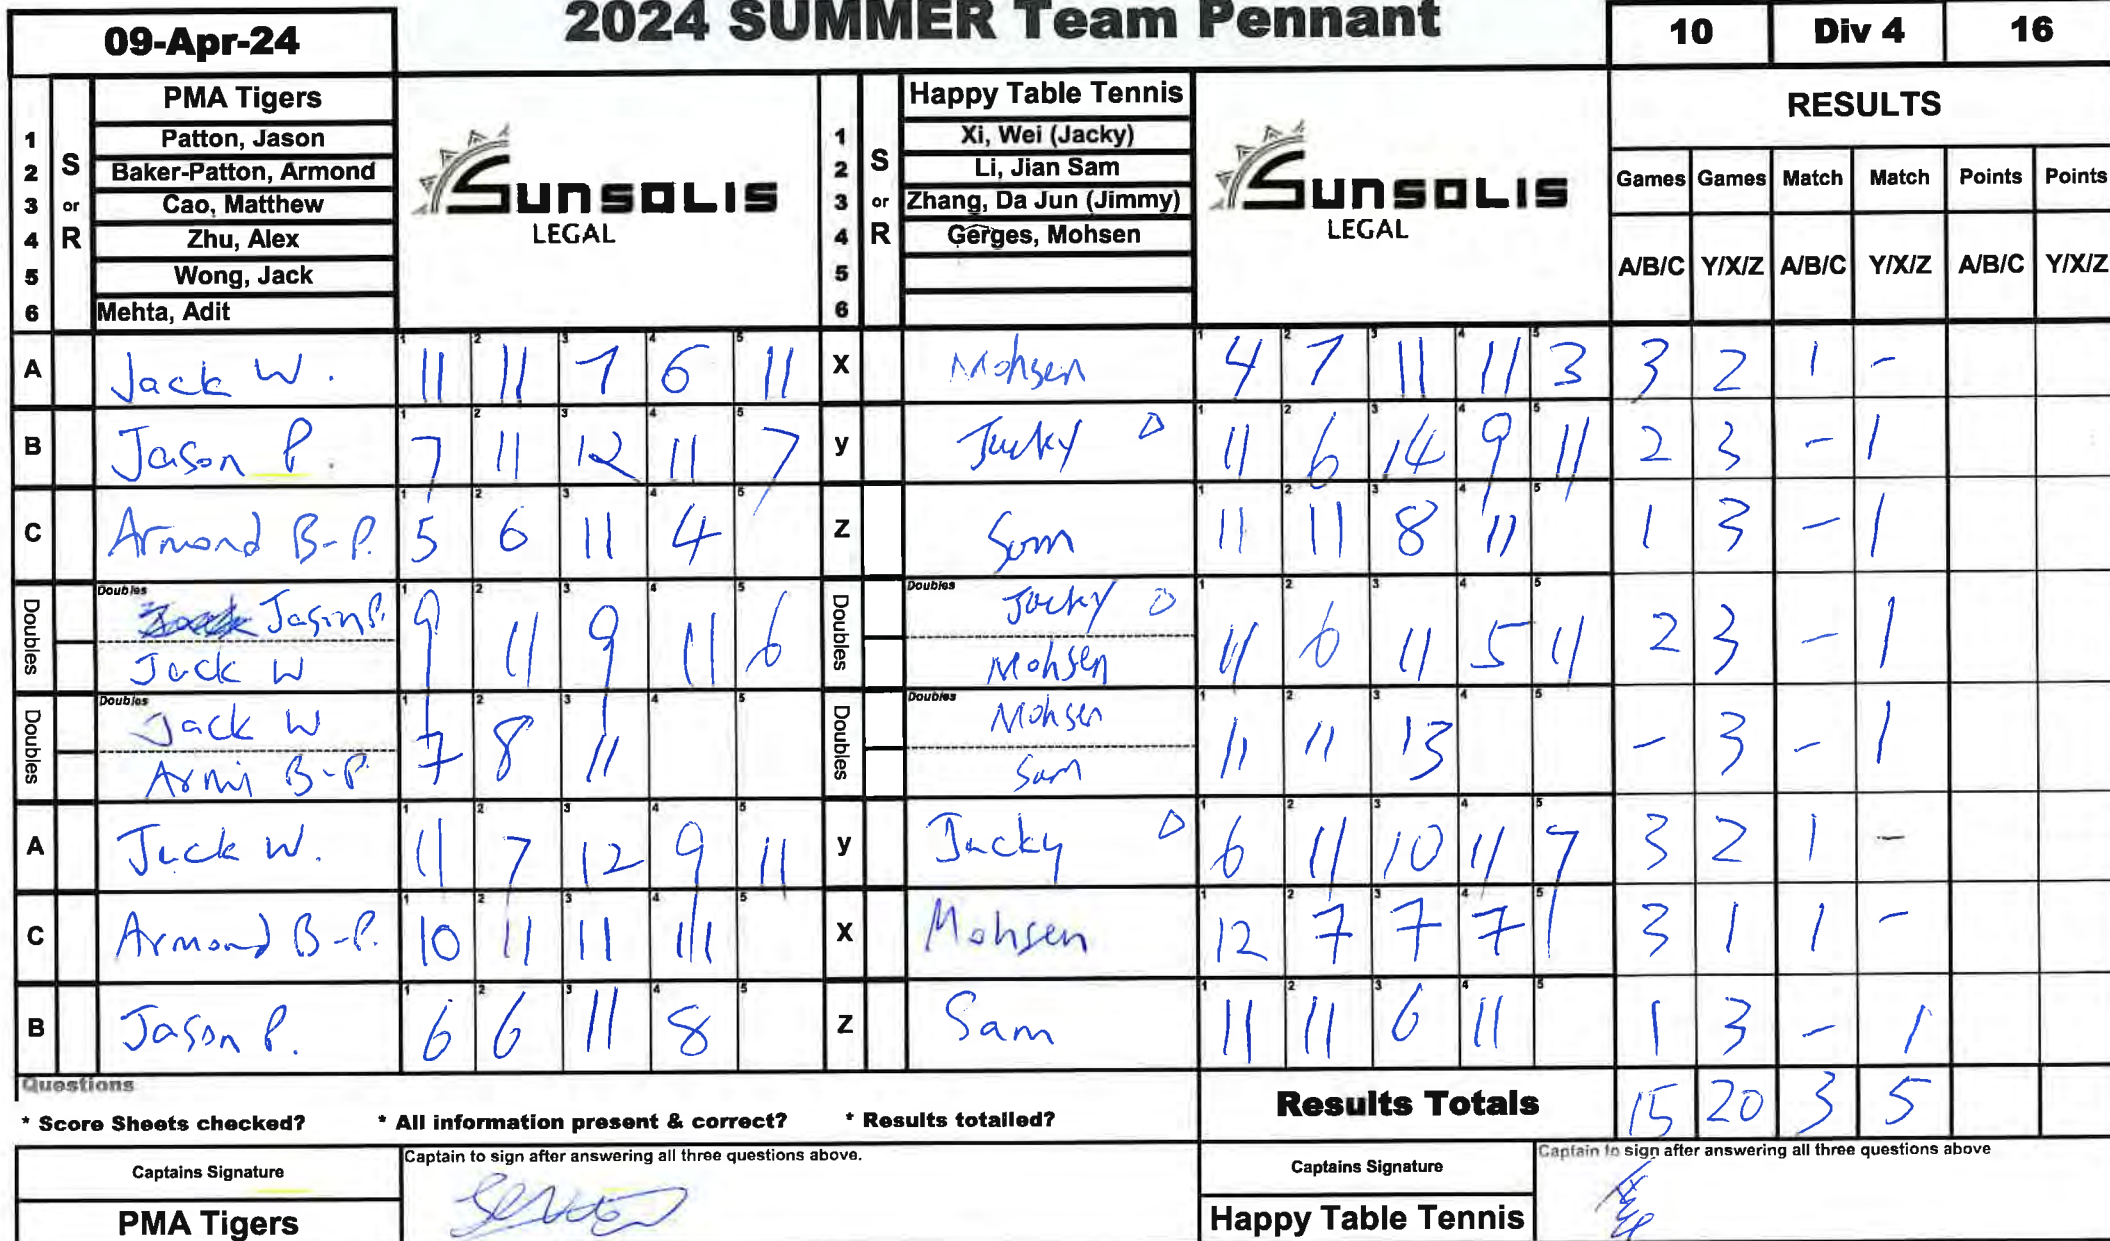 2024 SUMMER Team Pennant
09-Apr-24
10 Div 4 16
PMA Tigers
1 Patton, Jason
2 Baker-Patton, Armond
3 Cao, Matthew
4 Zhu, Alex
5 Wong, Jack
6 Mehta, Adit
S or R
SUNSOLIS
LEGAL
Happy Table Tennis
1 Xi, Wei (Jacky)
2 Li, Jian Sam
3 Zhang, Da Jun (Jimmy)
4 Gerges, Mohsen
5
6
S or R
SUNSOLIS
LEGAL
RESULTS
Games Games Match Match Points Points
A/B/C Y/X/Z A/B/C Y/X/Z A/B/C Y/X/Z
A Jack W. 11 11 7 6 11 X Mohsen 4 7 11 11 3 3 2 1 -
B Jason P. 7 11 12 11 7 y Jacky 11 6 14 9 11 2 3 - 1
C Armond B-P. 5 6 11 4 Z Sam 11 11 8 11 1 3 - 1
Doubles Doubles Jason P. 9 11 9 11 6 Doubles Doubles Jacky 11 6 11 5 11 2 3 - 1
Jack W Mohsen
Doubles Doubles Jack W 7 8 11 Doubles Doubles Mohsen 11 11 13 - 3 - 1
Armi B-P. Sam
A Jack W. 11 7 12 9 11 y Jacky 6 11 10 11 7 3 2 1 -
C Armond B-P. 10 11 11 11 X Mohsen 12 7 7 7 3 1 1 -
B Jason P. 6 6 11 8 Z Sam 11 11 6 11 1 3 - 1
Questions
* Score Sheets checked? * All information present & correct? * Results totalled?
Results Totals 15 20 3 5
Captains Signature
Captain to sign after answering all three questions above.
PMA Tigers
Captains Signature
Captain to sign after answering all three questions above
Happy Table Tennis